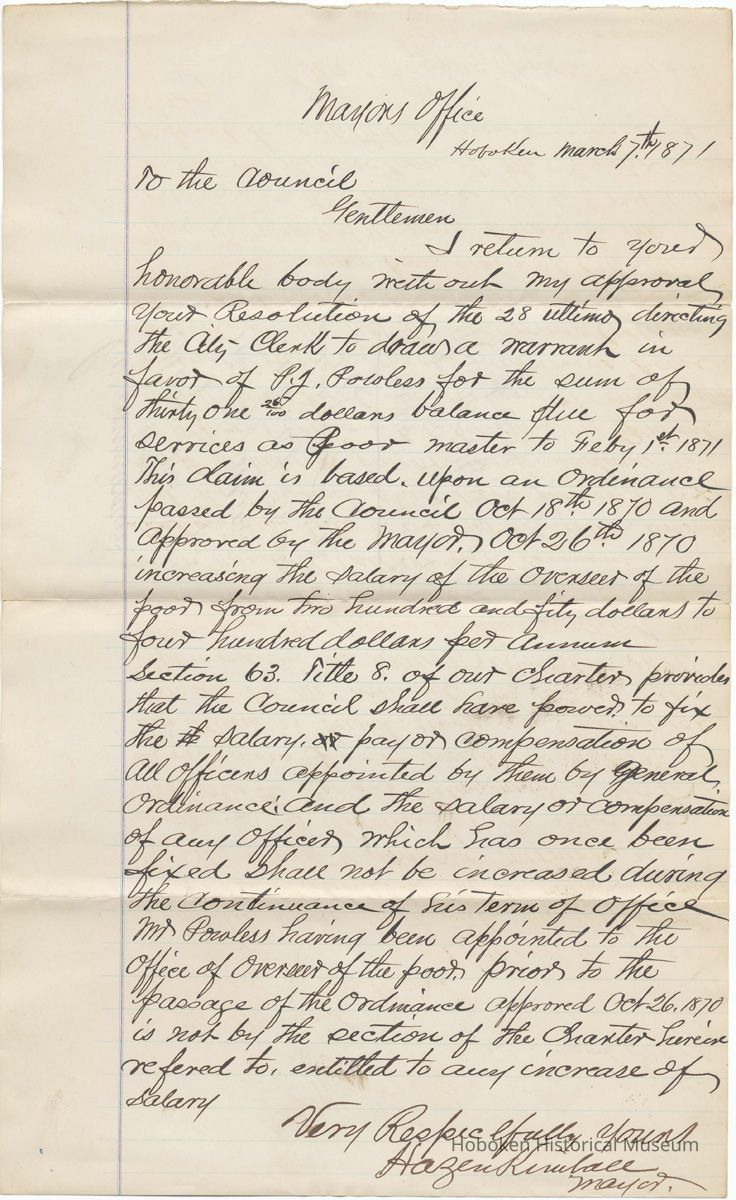 Mayors Office
Hoboken March 7th 1871
To the Council
Gentlemen
I return to your
honorable body with out my approval
your Resolution of the 28 ultimo directing
the City Clerk to draw a warrant in
favor of P.J. Powless for the sum of
thirty one 26/100 dollars balance due for
services as Poor master to Feby 1st 1871
This claim is based upon an Ordinance
passed by the Council Oct 18th 1870 and
approved by the Mayor, Oct 26th 1870
increasing the salary of the Overseer of the
poor from two hundred and fity dollars to
four hundred dollars per Annum
Section 63. Title 8. of our Charter provides
that the Council shall have power to fix
the salary, pay or compensation of
all officers appointed by them by general
Ordinance: and the salary or compensation
of any Officer which has once been
fixed shall not be increased during
the continuance of his Term of Office
Mr Powless having been appointed to the
Office of Overseer of the poor, prior to the
passage of the Ordinance approved Oct 26, 1870
is not by the section of the Charter herein
refered to, entitled to any increase of
salary
Very Respectfully Yours
Hazen Kimball
Mayor.
Hoboken Historical Museum